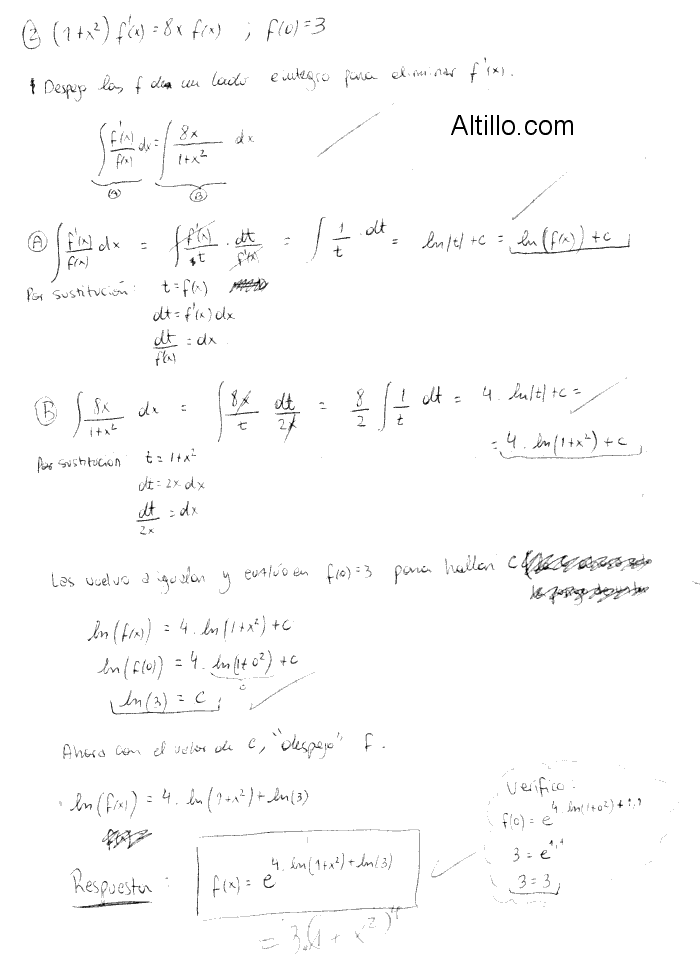 ② (1+x²) f'(x) = 8x f(x) ; f(0)=3
Despejo las f de un lado e integro para eliminar f'(x).
Altillo.com
∫ f'(x)/f(x) dx = ∫ 8x/(1+x²) dx
Ⓐ Ⓑ
Ⓐ ∫ f'(x)/f(x) dx = ∫ f'(x)/t · dt/f'(x) = ∫ 1/t · dt = ln|t| + c = ln(f(x)) + c
Por sustitución: t = f(x)
dt = f'(x) dx
dt/f'(x) = dx
Ⓑ ∫ 8x/(1+x²) dx = ∫ 8x/t dt/2x = 8/2 ∫ 1/t dt = 4. ln|t| + c =
= 4. ln(1+x²) + c
Por sustitucion t = 1+x²
dt = 2x dx
dt/2x = dx
Los vuelvo a igualar y evalúo en f(0)=3 para hallar c
ln(f(x)) = 4. ln(1+x²) + c
ln(f(0)) = 4. ln(1+0²) + c
0
ln(3) = c
Ahora con el valor de c, "despejo" f.
ln(f(x)) = 4. ln(1+x²) + ln(3)
Verifico:
f(0) = e^(4. ln(1+0²) + 1,1)
3 = e^(1,1)
3 = 3
Respuesta: f(x) = e^(4. ln(1+x²) + ln(3))
= 3.(1+x²)⁴